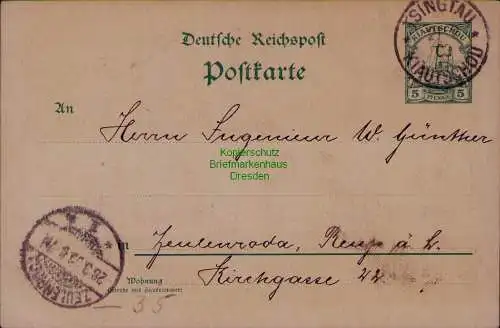 TSINGTAU
KIAUTSCHOU
Deutsche Reichspost
KIAUTSCHOU
Postkarte
5 PFENNIG 5
An
Herrn Ingenieur W. Günther
Kopierschutz
Briefmarkenhaus
Dresden
in Zeulenroda, Reuss ä. L.
Kirchgasse 22
Wohnung
(Straße und Hausnummer)
ZEULENRODA
35